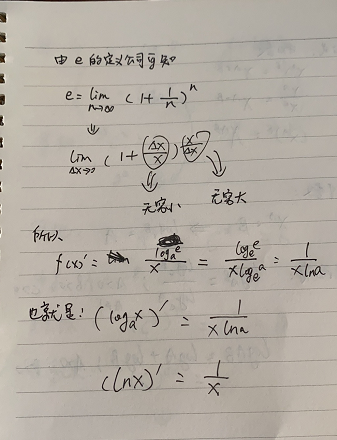 由 e 的定义公司可知
e = lim n→∞ (1 + 1/n)^n
⇓
lim Δx→0 (1 + Δx/x)^(x/Δx)
无穷小 无穷大
所以
f(x)' = log_a e / x = log_e e / (x log_e a) = 1/(x ln a)
也就是: (log_a x)' = 1/(x ln a)
(ln x)' = 1/x